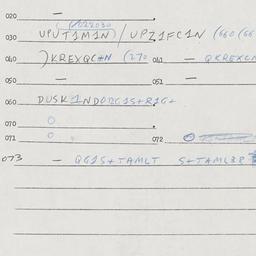 020 —
(1022030
030 UPUT1M1N) / UPZ1FC1N (660 (66
040 )KREXQC#N (270 041 — QKREXCN
050 — 051 —
060 DUSK1NDORG1S+R1G+
070 0
071 0 072 0
073 — QG1S+TAMLT S+TAML38